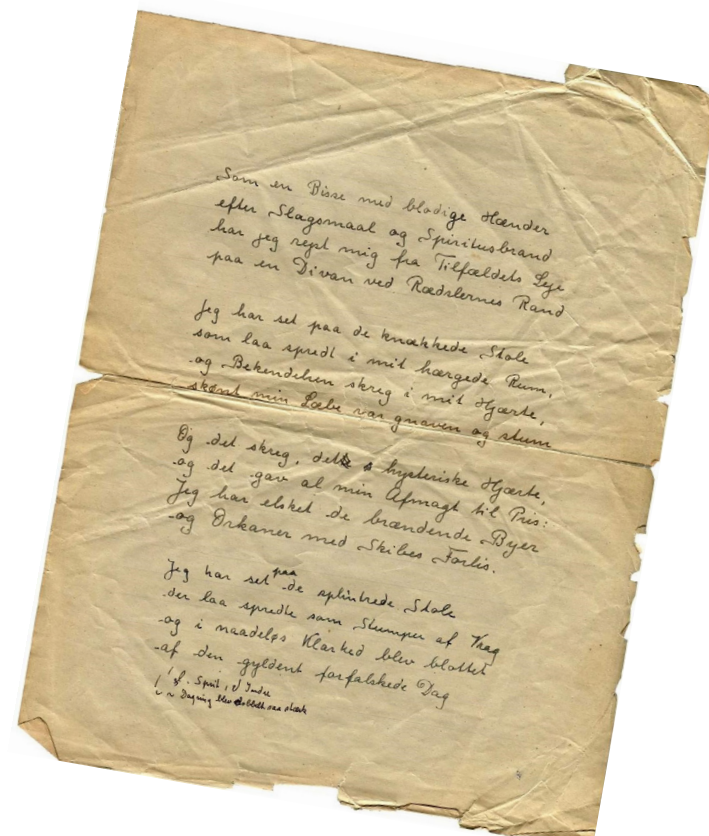 Som en Bisse med blodige Hænder
efter Slagsmaal og Spiritusbrand
har jeg rejst mig fra Tilfældets Leje
paa en Divan ved Rædslernes Rand
Jeg har set paa de knækkede Stole
som laa spredt i mit hærgede Rum,
og Bekendelsen skreg i mit Hjærte,
skønt min Læbe var gnaven og stum
Og det skreg, dette hysteriske Hjærte,
og det gav al min Afmagt til Pris:
Jeg har elsket de brændende Byer
og Orkaner med Skibes Forlis.
Jeg har set paa de splintrede Stole
der laa spredte som Stumper af Vrag
og i naadeløs Klarhed blev blottet
af den gyldent forfalskede Dag
Dagning blev